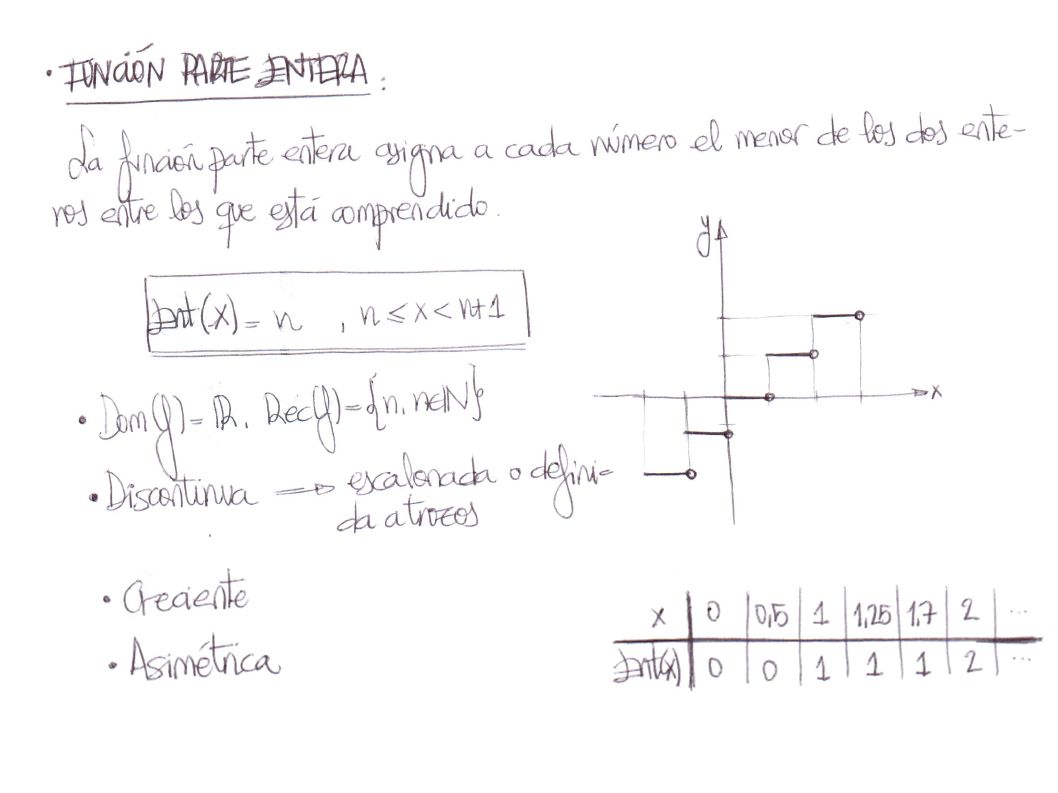 · FUNCIÓN PARTE ENTERA:
La función parte entera asigna a cada número el menor de los dos ente-
ros entre los que está comprendido.
Int(x) = n , n ≤ x < n+1
y
x
· Dom(f) = ℝ. Rec(f) = {n, n∈ℕ}
· Discontinua → escalonada o defini-
da a trozos
· Creciente
· Asimétrica
x | 0 | 0,5 | 1 | 1,25 | 1,7 | 2 | ...
Int(x) | 0 | 0 | 1 | 1 | 1 | 2 | ...